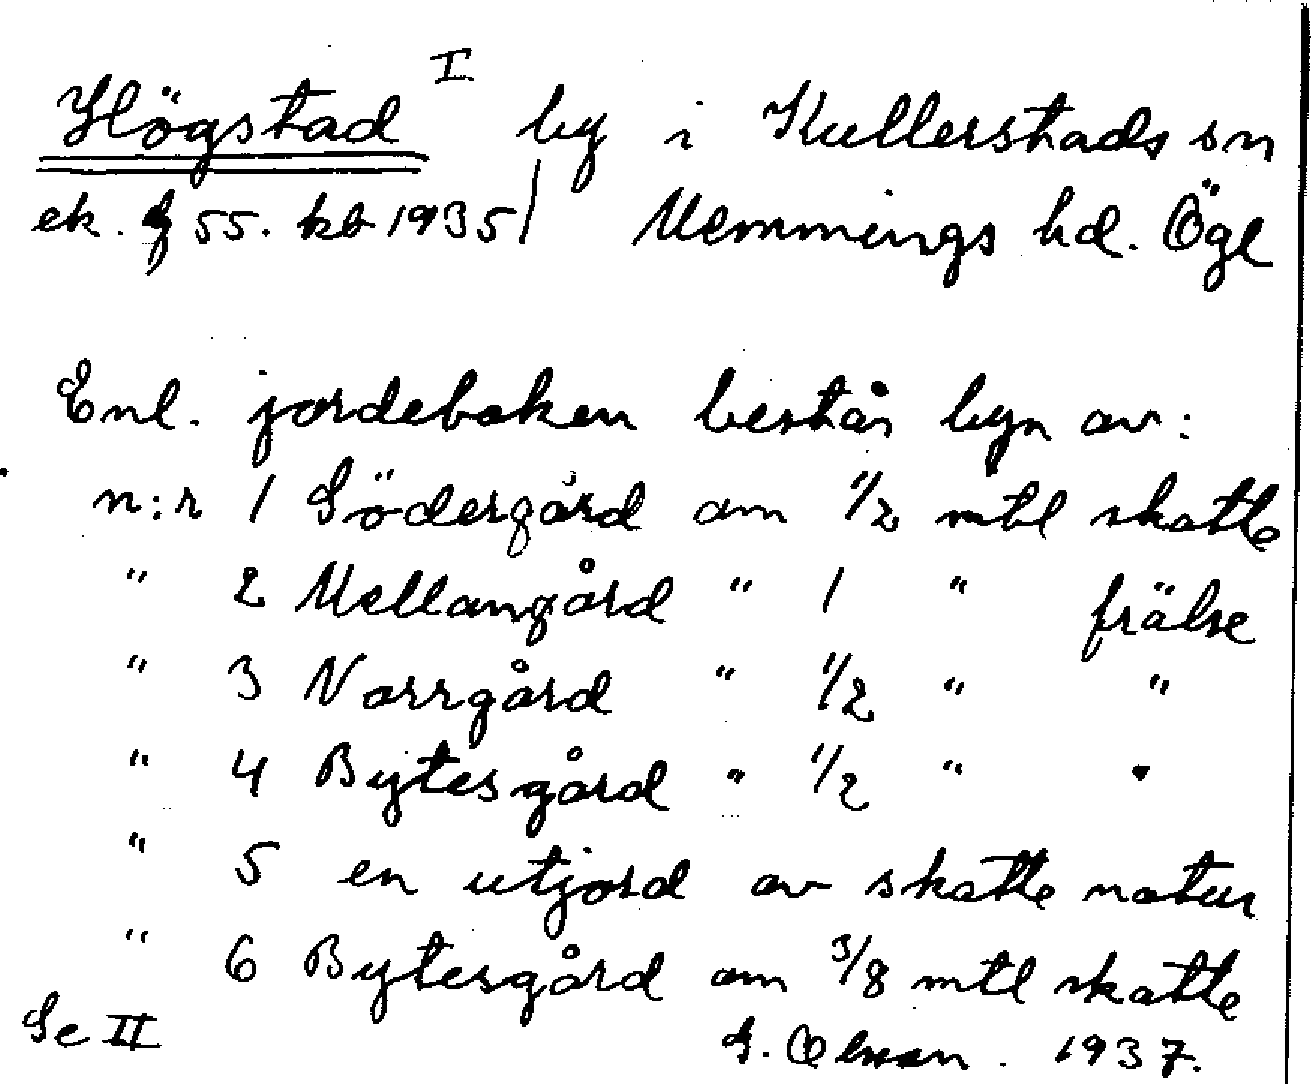 Högstad I by i Kullerstads sn
ek. f 55. kb 1935/ Memmings hd. Ögl
Enl. jordeboken består byn av:
n:r 1 Södergård om 1/2 mtl skatte
" 2 Mellangård " 1 " frälse
" 3 Norrgård " 1/2 " "
" 4 Bytesgård " 1/2 " "
" 5 en utjord av skatte natur
" 6 Bytesgård om 3/8 mtl skatte
Se II
G. Olsson. 1937.